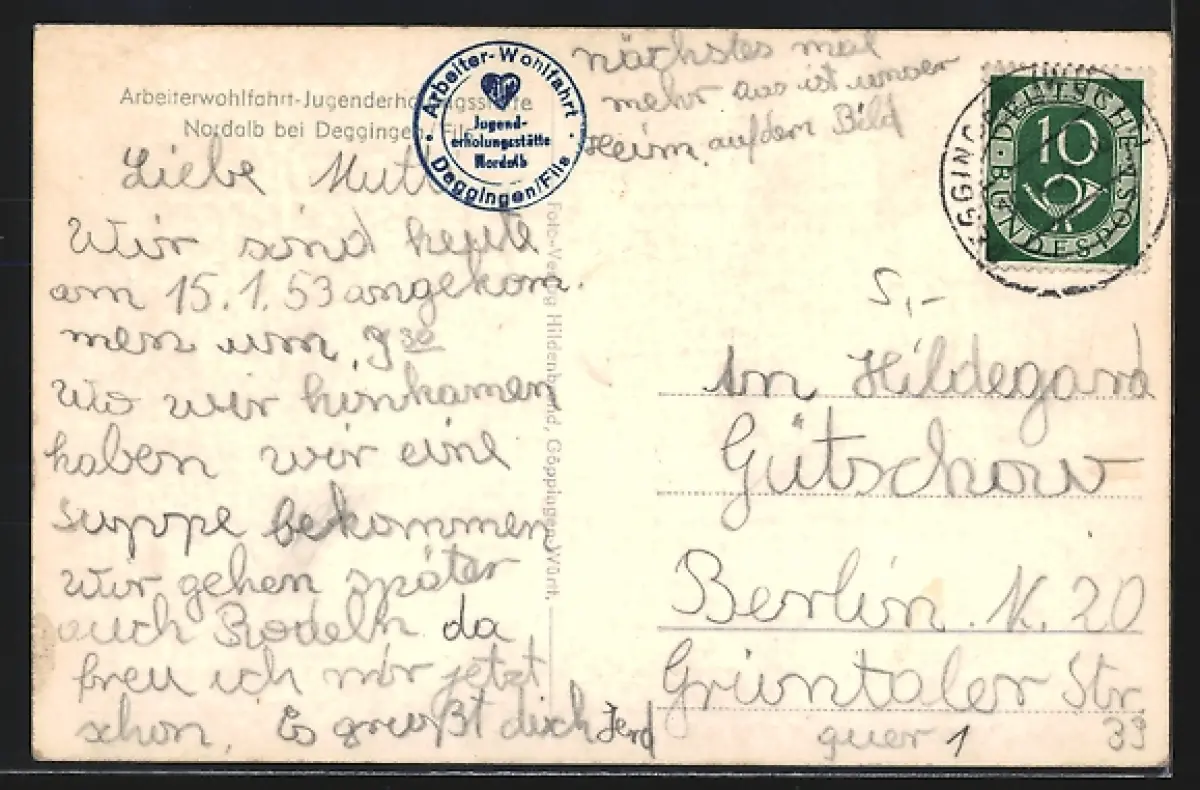 Arbeiterwohlfahrt-Jugenderholungsstätte
Nordalb bei Deggingen/Fils
Arbeiter-Wohlfahrt
Jugend-
erholungsstätte
Nordalb
Deggingen/Fils
nächstes mal
mehr das ist unser
Heim auf dem Bild
Liebe Mutti
Wir sind heute
am 15.1.53 angekom.
men um 9 30
Wo wir hinkamen
haben wir eine
suppe bekommen
Wir gehen später
auch Rodeln da
freu ich mir jetzt
schon. Es grüßt dich
Foto-Verlag Hildenbrand, Göppingen/Württ.
DEUTSCHE BUNDESPOST
10
GGINGEN
5,-
An Hildegard
Gütschow
Berlin N. 20
Grüntaler Str
39
quer 1